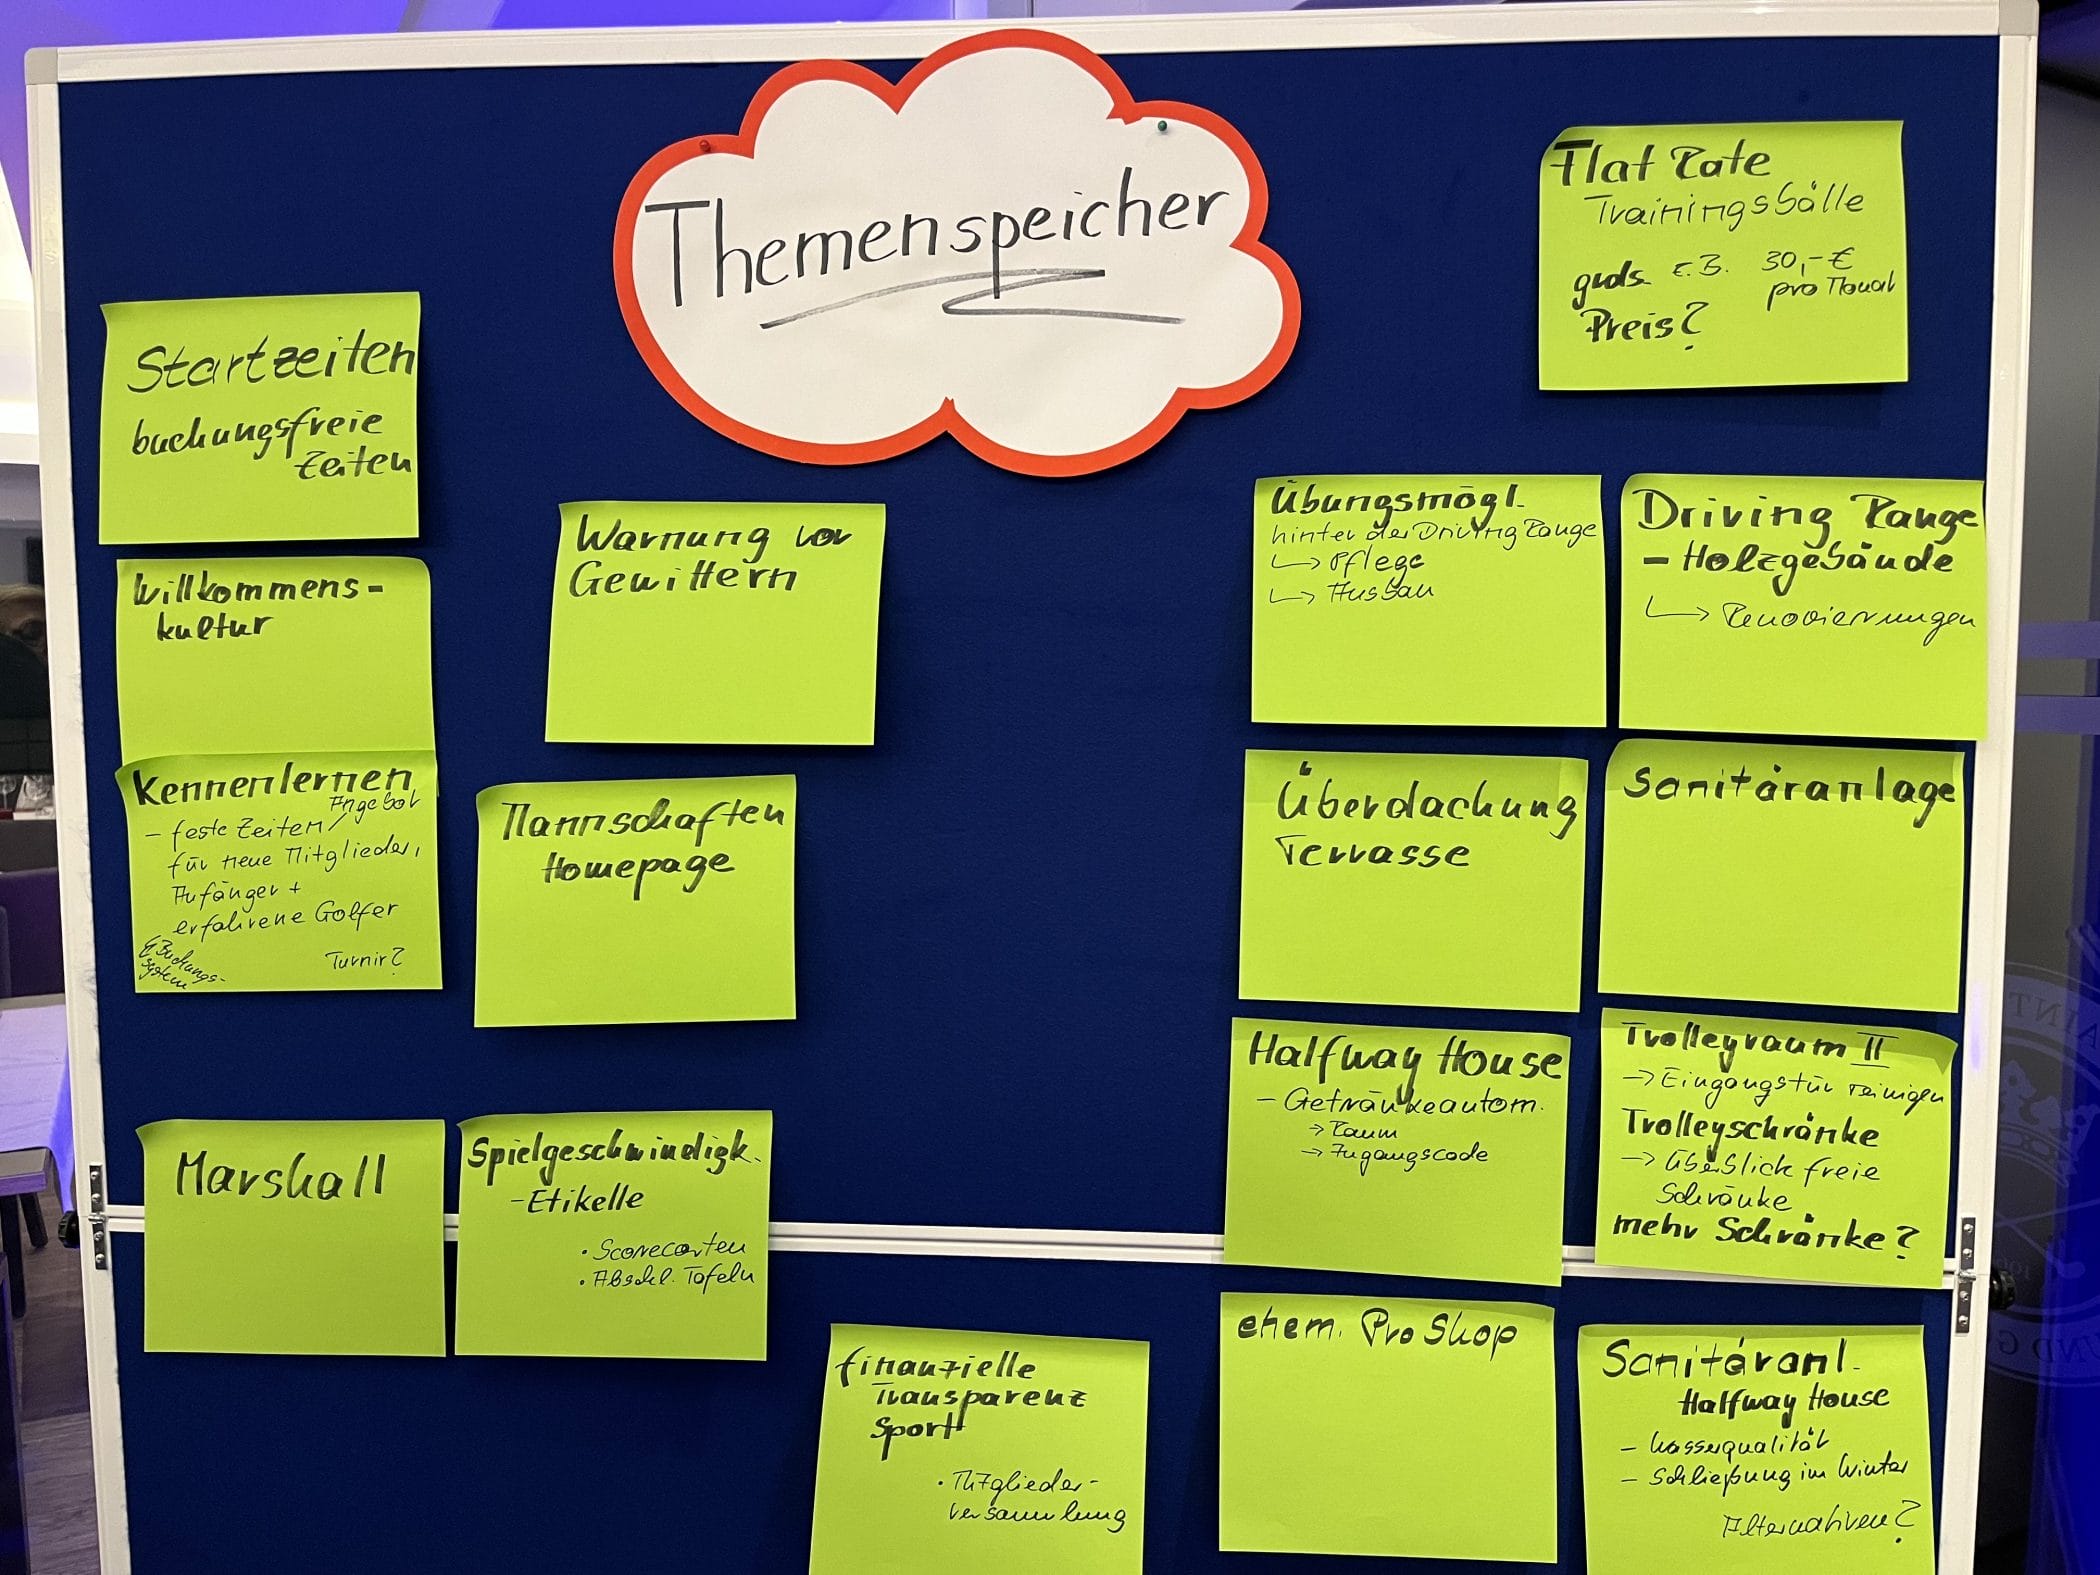 Themenspeicher
Startzeiten
buchungsfreie
Zeiten
Willkommens-
kultur
Kennenlernen
Angebot
- feste Zeiten/
für neue Mitglieder,
Anfänger +
erfahrene Golfer
Buchungs-
system
Turnir?
Warnung vor
Gewittern
Mannschaften
Homepage
Marshall
Spielgeschwindigk.
- Etikette
• Scorecarten
• Abschl. Tafeln
finanzielle
Transparenz
Sport
• Mitglieder-
versammlung
Flat Rate
Trainingsbälle
z.B. 30,-€
pro Monat
Preis?
Übungsmögl.
hinter der Driving Range
↳ Pflege
↳ Ausbau
Driving Range
- Holzgebäude
↳ Renovierungen
Überdachung
Terrasse
Sanitäranlage
Halfway House
- Getränkeautom.
→ Raum
→ Zugangscode
Trolleyraum II
→ Eingangstür reinigen
Trolleyschränke
→ Überblick freie
Schränke
mehr Schränke?
ehem. Pro Shop
Sanitäranl.
Halfway House
- Wasserqualität
- Schließung im Winter
Alternativen?